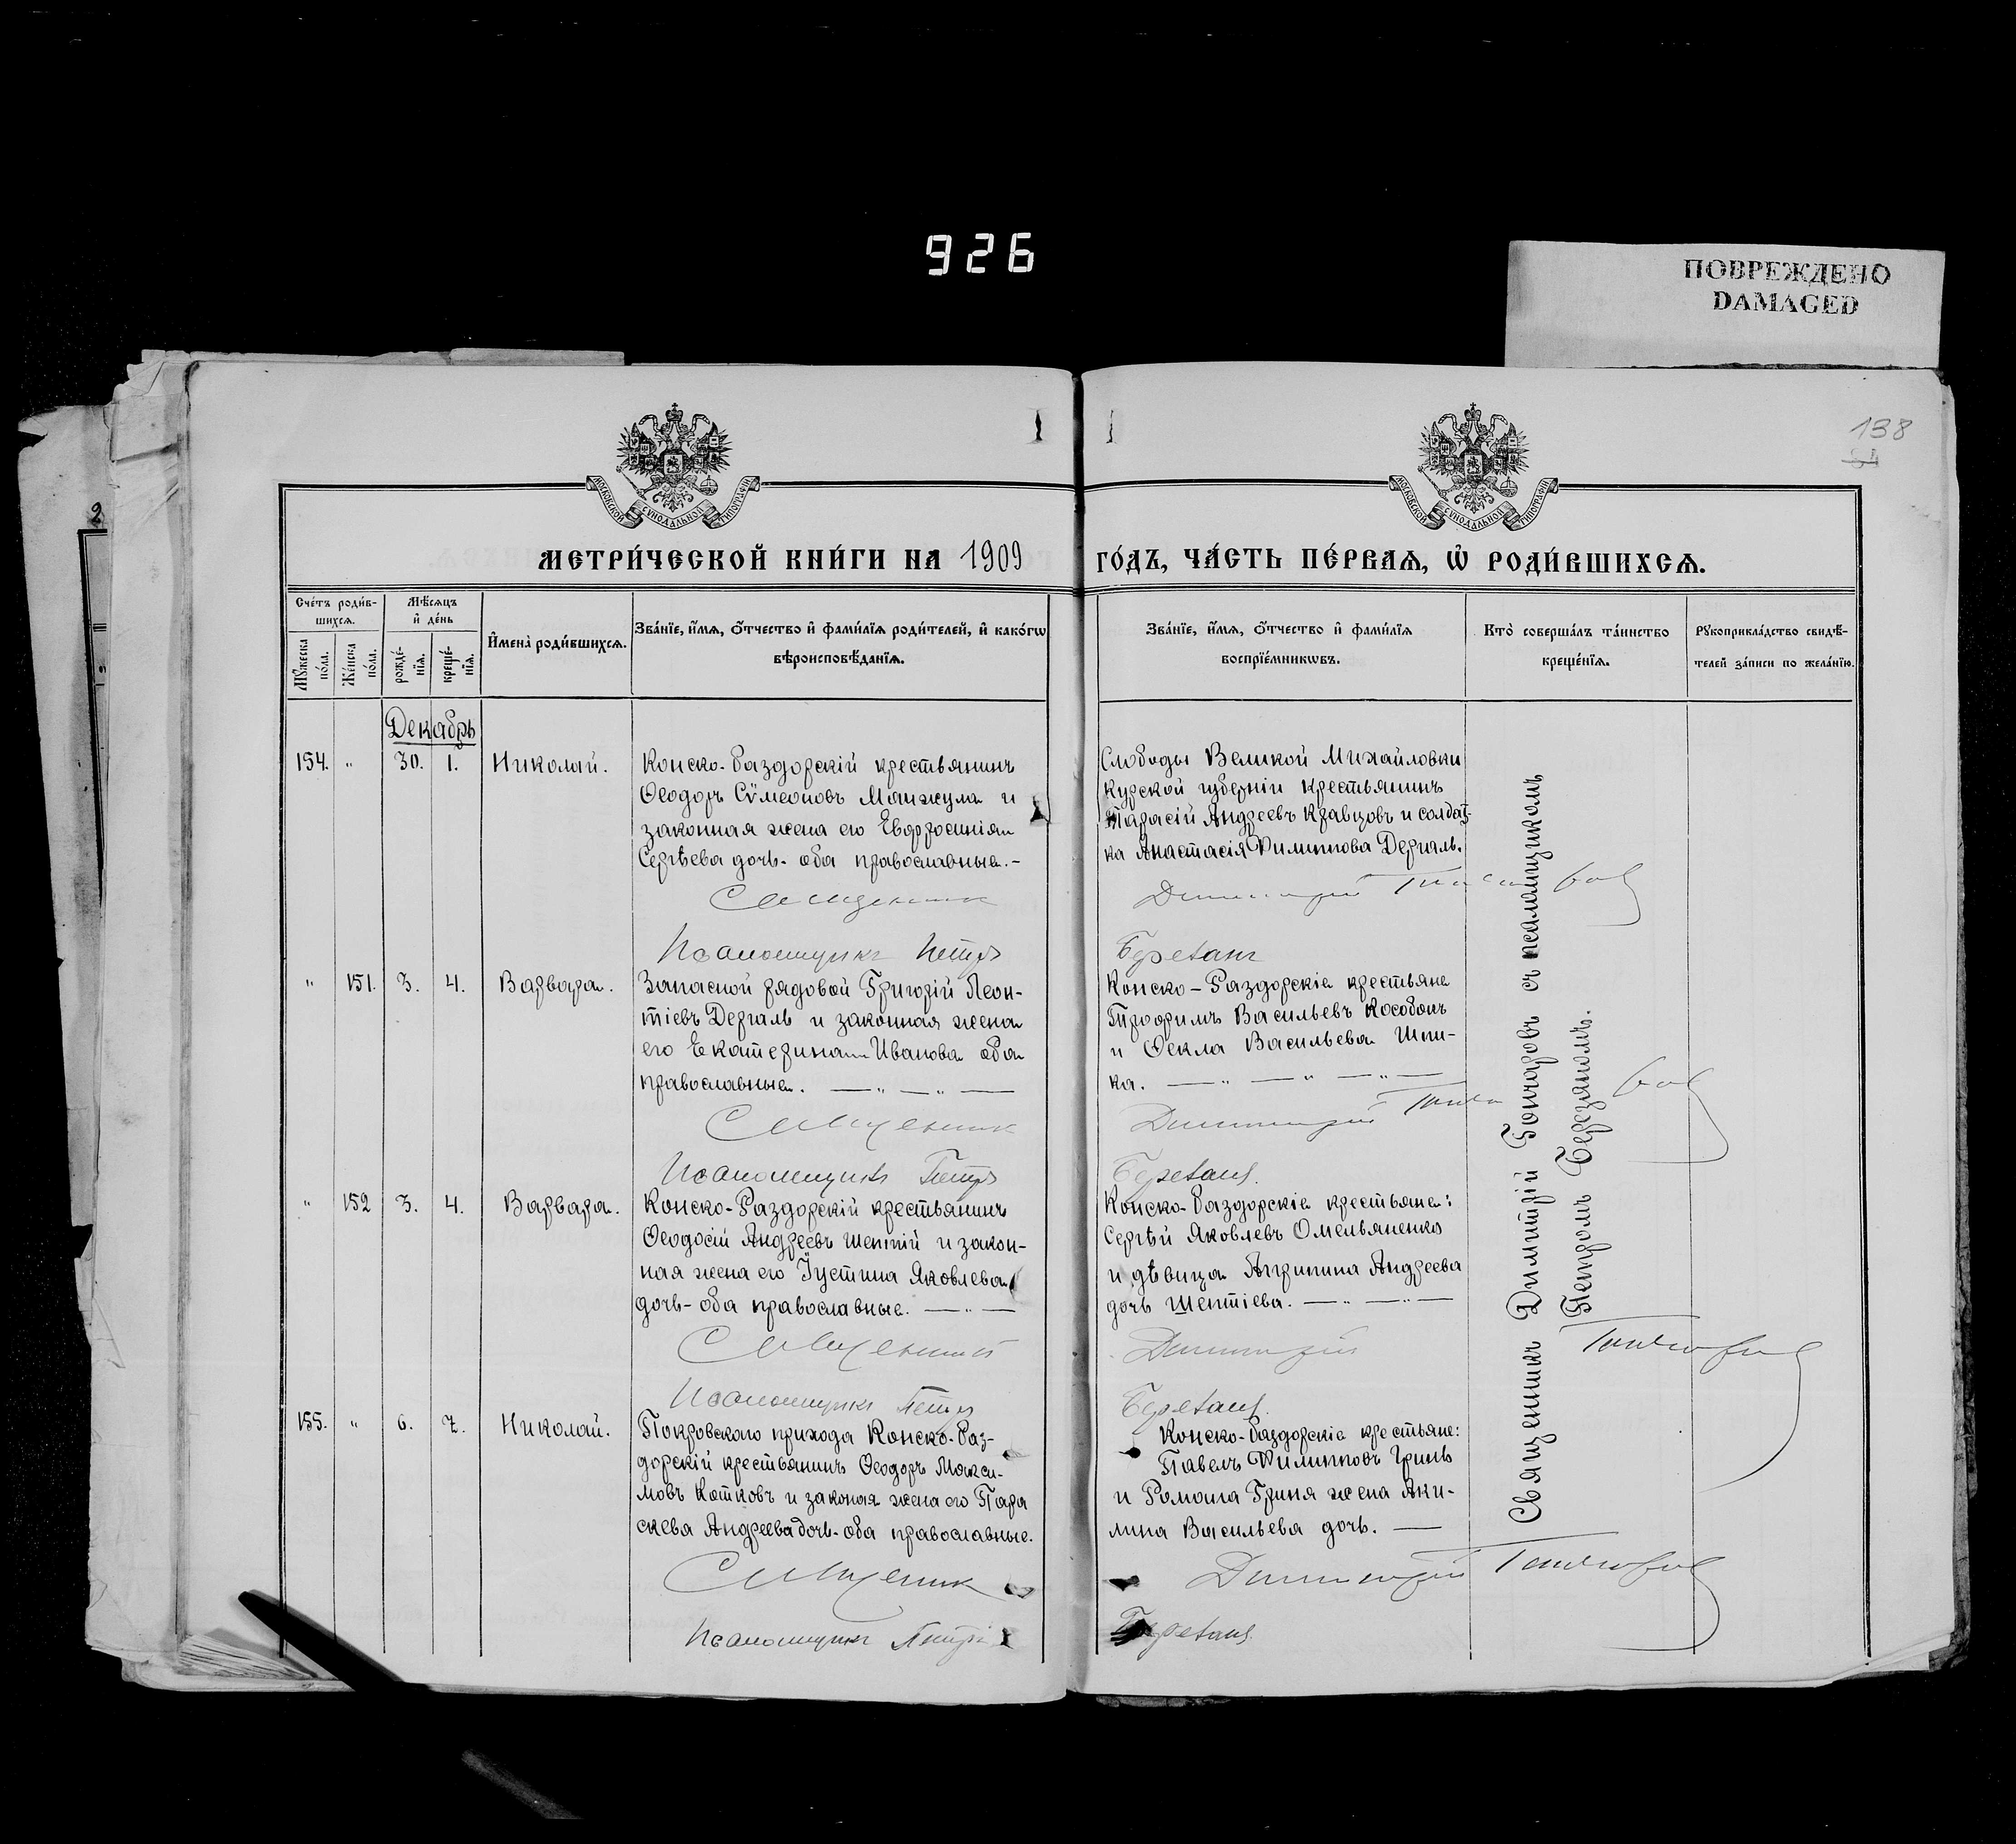 926
ПОВРЕЖДЕНО
DAMAGED
138
84
2
МОСКОВСКОЙ СѴНОДАЛЬНОЙ ТИПОГРАФІИ
МОСКОВСКОЙ СѴНОДАЛЬНОЙ ТИПОГРАФІИ
МЕТРИ́ЧЕСКОЙ КНИ́ГИ НА 1909 ГО́ДЪ, ЧА́СТЬ ПЕ́РВАѦ, Ѡ҆ РОДИ́ВШИХСѦ.
Сче́тъ роди́в-
шихсѧ.
Мѣ́сѧцъ
и҆ де́нь
Мꙋ́жеска
по́ла.
Же́нска
по́ла.
рожде́-
нїѧ.
креще́-
нїѧ.
И҆мена̀ роди́вшихсѧ.
Зва́нїе, и҆́мѧ, ѻ҆́тчество и҆ фами́лїѧ роди́телей, и҆ како́гѡ
вѣроисповѣ́данїѧ.
Зва́нїе, и҆́мѧ, ѻ҆́тчество и҆ фами́лїѧ
воспрїе́мникѡвъ.
Кто̀ соверша́лъ та́инство
креще́нїѧ.
Рꙋкоприкла́дство свидѣ́-
телей за́писи по жела́нїю.
Декабрь
154. " 30. 1. Николай.
Конско-Раздорскій крестьянинъ
Ѳеодоръ Сѵмеоновъ Манжула и
законная жена его Евфросинія
Сергѣева дочь- оба православные.-
Священник
Псаломщикъ Петръ
Слободы Великой Михайловки
Курской губерніи крестьянинъ
Тарасій Андреевъ Кравцовъ и солдат-
ка Анастасія Филиппова Дергаль.
Димитрій Гончаров
Березанъ
" 151. 3. 4. Варвара.
Запасной рядовой Григорій Леон-
тіевъ Дергаль и законная жена
его Екатерина Иванова оба
православные. — " — " —
Священник
Псаломщикъ Петръ
Конско-Раздорскіе крестьяне
Трофимъ Васильевъ Кособокъ
и Ѳекла Васильева Шпи-
ка. — " — " — " —
Димитрій Гончаров
Березанъ.
" 152 3. 4. Варвара.
Конско-Раздорскій крестьянинъ
Ѳеодосій Андреевъ Шептій и закон-
ная жена его Іустина Яковлева
дочь- оба православные. — " —
Священник
Псаломщикъ Петръ
Конско-Раздорскіе крестьяне:
Сергѣй Яковлевъ Омельяненко
и дѣвица Агрипина Андреева
дочь Шептіева. — " — " —
Димитрій Гончаров
Березанъ.
155. " 6. 7. Николай.
Покровскаго прихода Конско-Раз-
дорскій крестьянинъ Ѳеодоръ Макси-
мовъ Катковъ и законая жена его Пара
скева Андреева дочь- оба православные.
Священник
Псаломщикъ Петръ
Конско-Раздорскіе крестьяне:
Павелъ Филипповъ Гринь
и Романа Гриня жена Аки-
лина Васильева дочь. —
Димитрій Гончаров
Березанъ.
Священникъ Димитрій Гончаровъ съ псаломщикомъ
Петромъ Березаномъ.